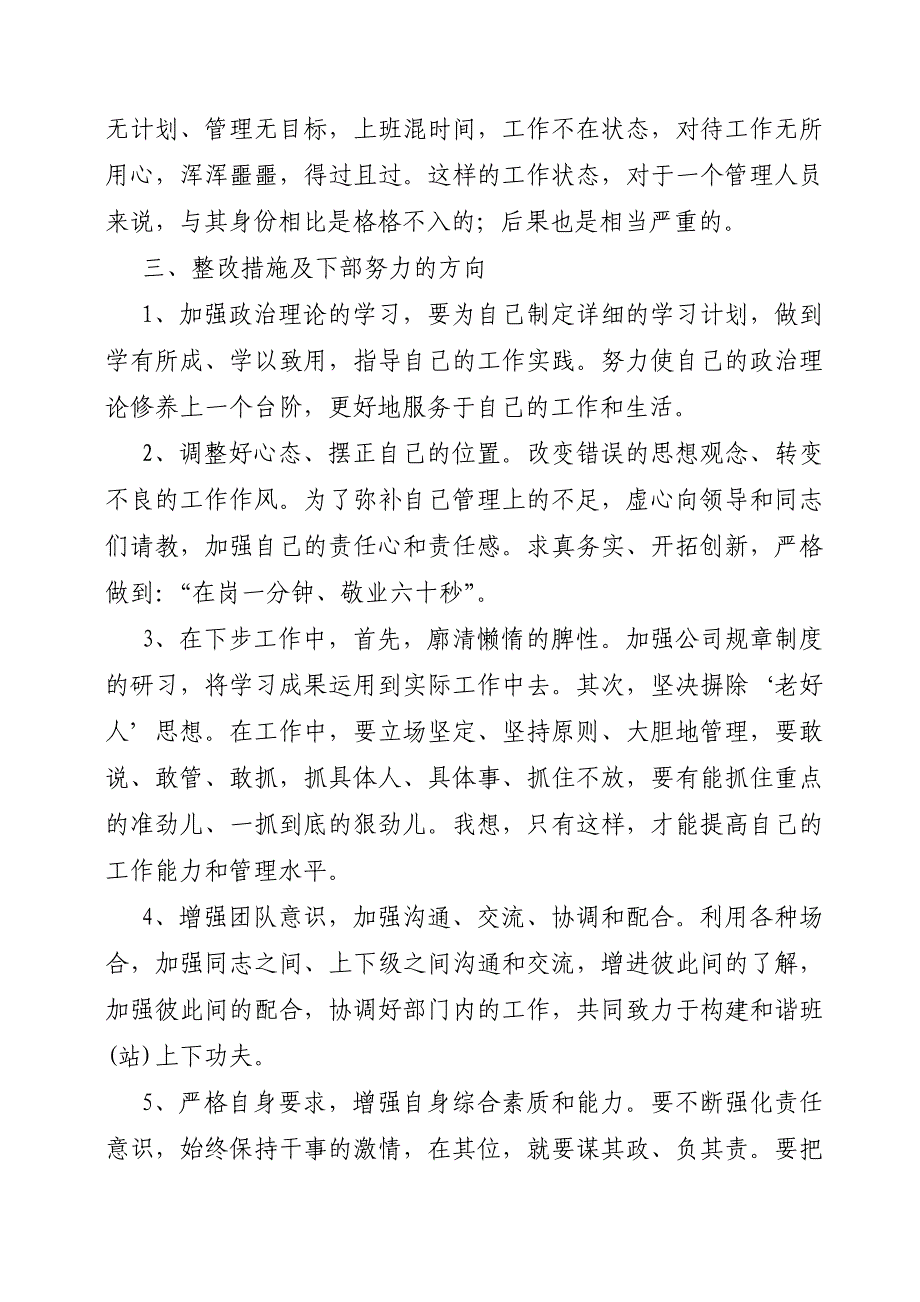 无计划、管理无目标，上班混时间，工作不在状态，对待工作无所
用心，浑浑噩噩，得过且过。这样的工作状态，对于一个管理人员
来说，与其身份相比是格格不入的；后果也是相当严重的。
三、整改措施及下部努力的方向
1、加强政治理论的学习，要为自己制定详细的学习计划，做到
学有所成、学以致用，指导自己的工作实践。努力使自己的政治理
论修养上一个台阶，更好地服务于自己的工作和生活。
2、调整好心态、摆正自己的位置。改变错误的思想观念、转变
不良的工作作风。为了弥补自己管理上的不足，虚心向领导和同志
们请教，加强自己的责任心和责任感。求真务实、开拓创新，严格
做到：“在岗一分钟、敬业六十秒”。
3、在下步工作中，首先，廓清懒惰的脾性。加强公司规章制度
的研习，将学习成果运用到实际工作中去。其次，坚决摒除‘老好
人’思想。在工作中，要立场坚定、坚持原则、大胆地管理，要敢
说、敢管、敢抓，抓具体人、具体事、抓住不放，要有能抓住重点
的准劲儿、一抓到底的狠劲儿。我想，只有这样，才能提高自己的
工作能力和管理水平。
4、增强团队意识，加强沟通、交流、协调和配合。利用各种场
合，加强同志之间、上下级之间沟通和交流，增进彼此间的了解，
加强彼此间的配合，协调好部门内的工作，共同致力于构建和谐班
(站)上下功夫。
5、严格自身要求，增强自身综合素质和能力。要不断强化责任
意识，始终保持干事的激情，在其位，就要谋其政、负其责。要把